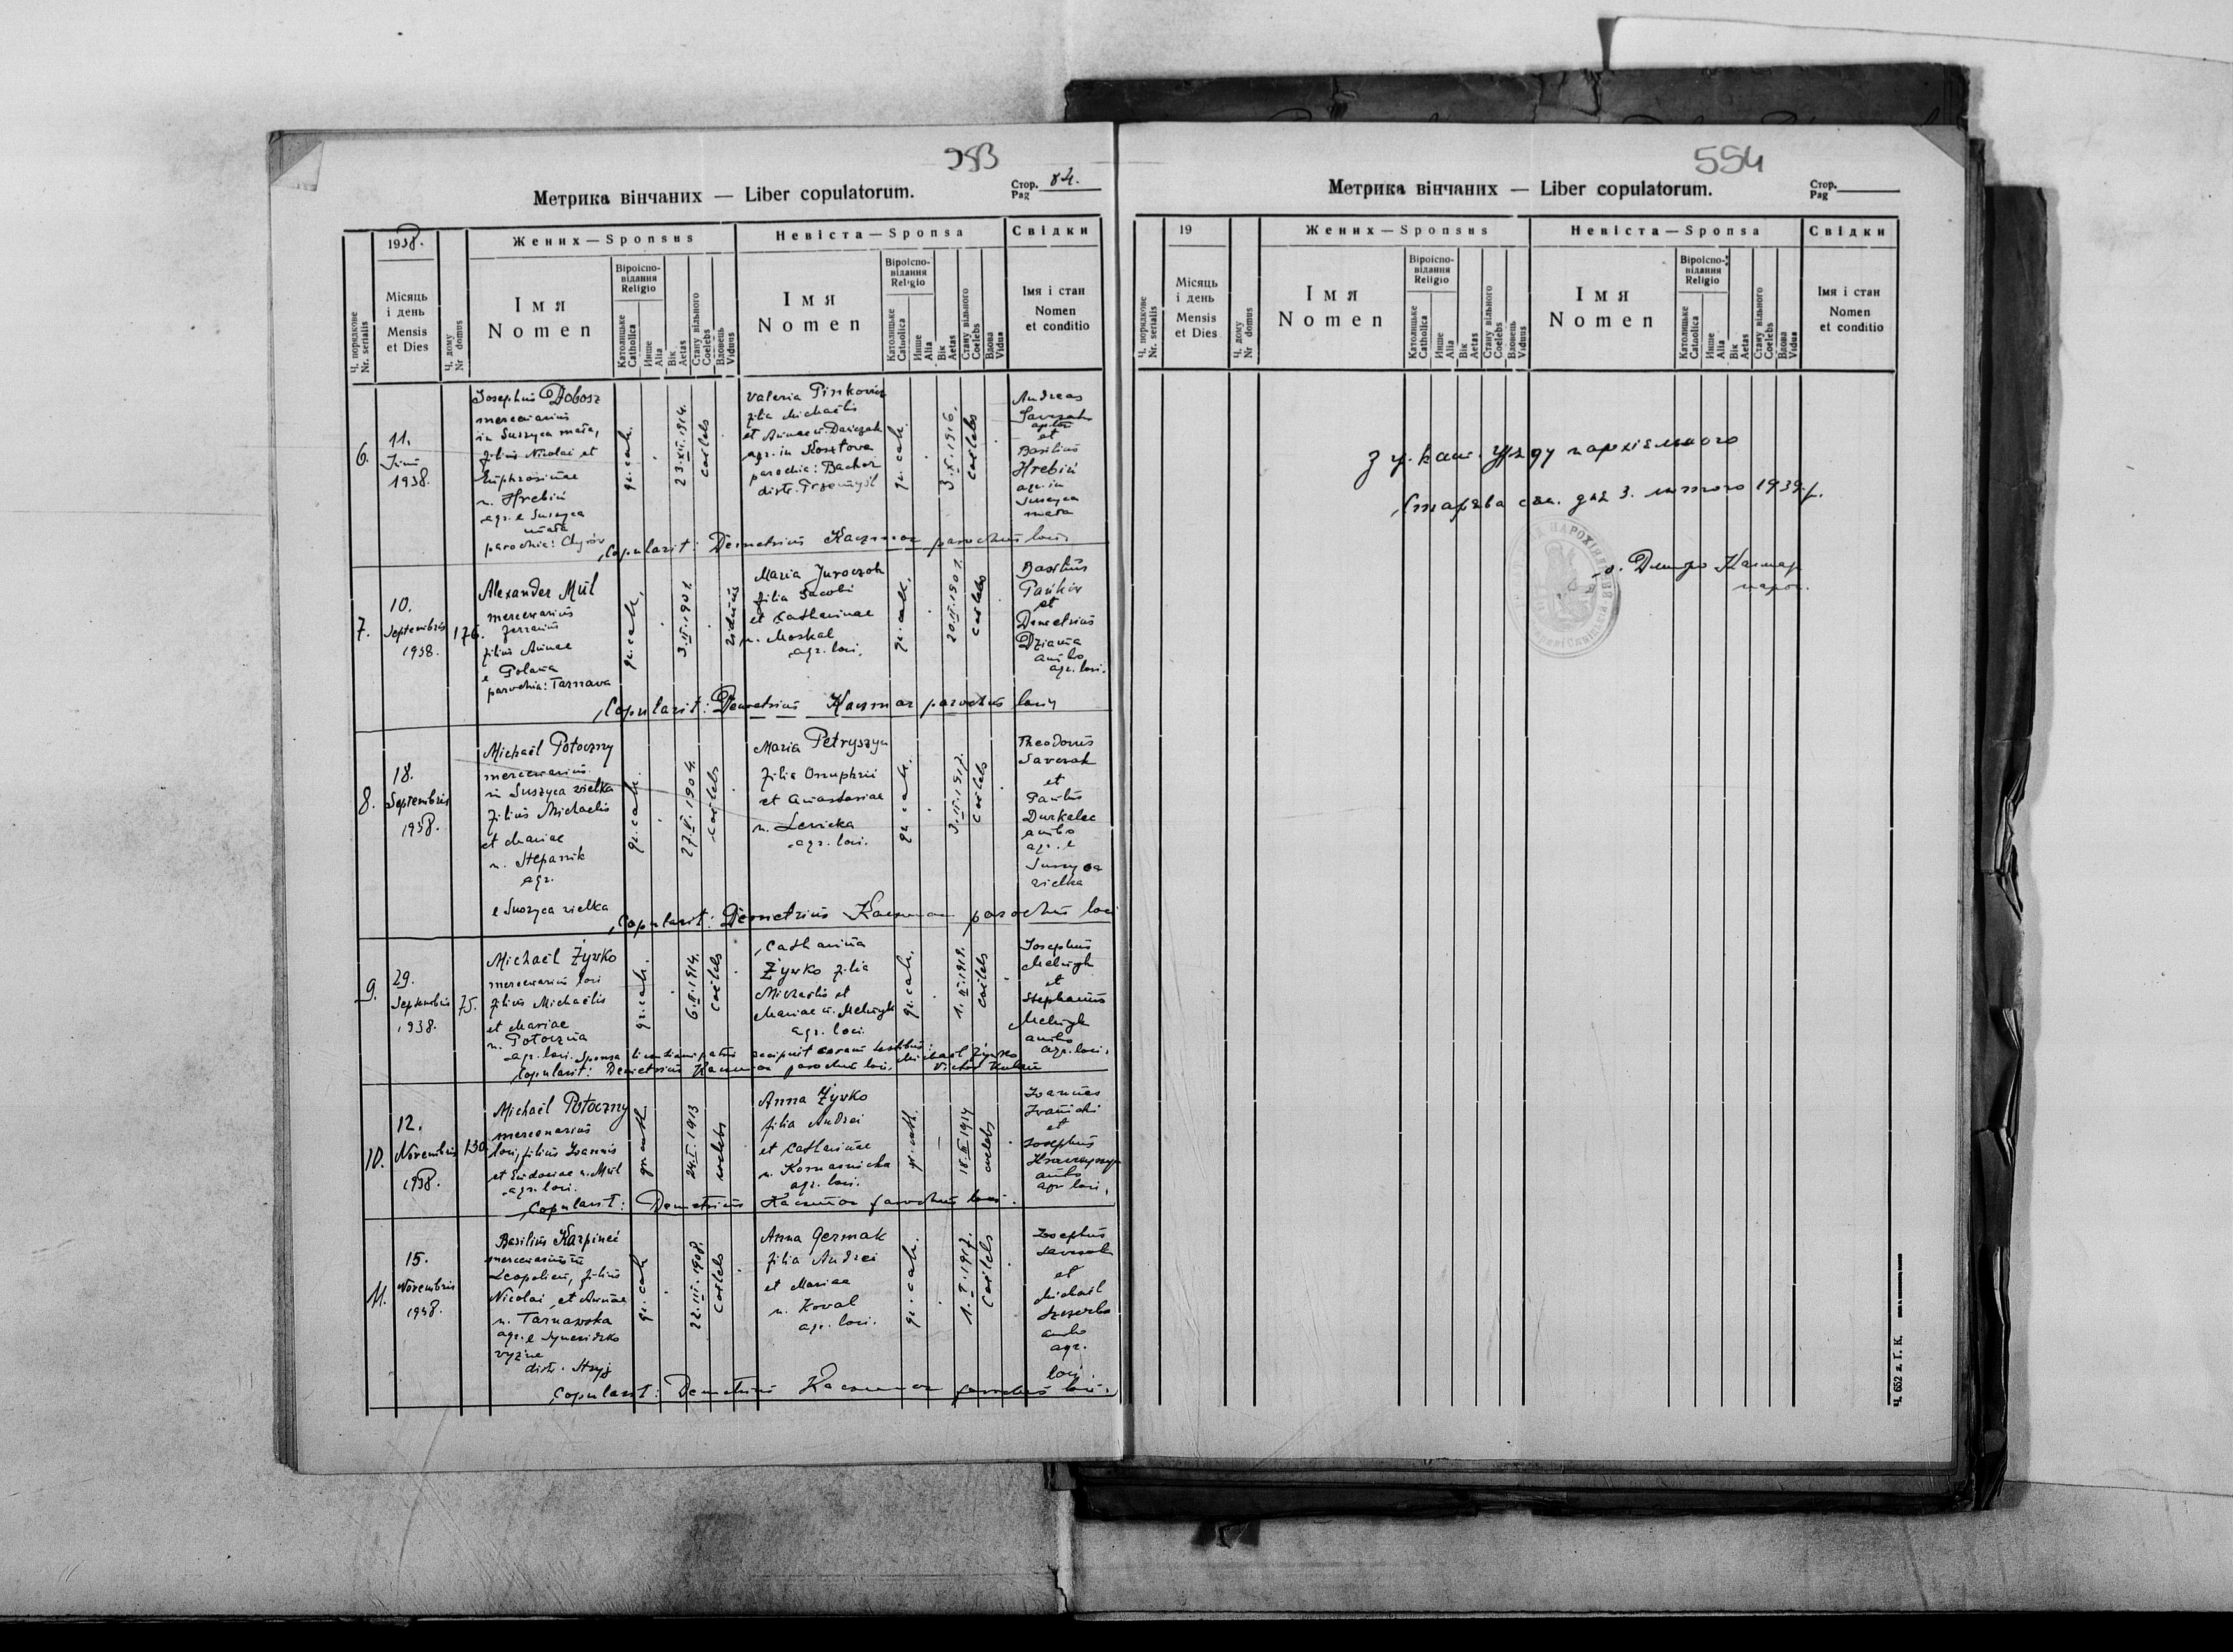 554
Метрика вінчаних — Liber copulatorum.
Стор. 84.
Pag
1938.
Жених — Sponsus
Невіста — Sponsa
Свідки
Ч. порядкове
Nr. serialis
Місяць
і день
Mensis
et Dies
Ч. дому
Nr domus
Імя
Nomen
Віроіспо-
відання
Religio
Католицьке
Catholica
Инше
Alia
Вік
Aetas
Стану вільного
Coelebs
Вдовець
Viduus
Імя
Nomen
Віроіспо-
відання
Religio
Католицьке
Catholica
Инше
Alia
Вік
Aetas
Стану вільного
Coelebs
Вдова
Vidua
Імя і стан
Nomen
et conditio
6.
11.
Junii
1938.
Josephus Dobosz
mercenarius
in Suszyca mała,
filius Nicolai et
Euphrosinae
n. Hrebiń
agr. e Suszyca
mała
parochia: Chyrów
gr. cath.
23.XI.1914.
coelebs
Valeria
filia Michaëlis
et Annae n. Dańczak
agr. in Kosztova
parochia: Bachor
distr. Przemyśl
gr. cath.
3.XI.1916.
coelebs
Andreas
Savczak
et
Basilius
Hrebiń
agr. in
Suszyca
mała
Copulavit: Demetrius Kaczmar parochus loci
7.
10.
Septembris
1938.
176.
Alexander Mül
mercenarius
filius Annae
e Polana
parochia: Tarnava
gr. cath.
3.II.1901.
viduus
Maria Juroczok
filia Jacobi
et Catharinae
n. Moskal
agr. loci.
gr. cath.
20.II.1901.
coelebs
Basilius
Pańkiv
et
Demetrius
Dziama
ambo
agr. loci.
Copulavit: Demetrius Kaczmar parochus loci
8.
18.
Septembris
1938.
Michaël Potoczny
mercenarius
in Suszyca vielka
filius Michaelis
et Mariae
n. Stepanik
agr.
e Suszyca vielka
gr. cath.
27.V.1904.
coelebs
Maria Petryszyn
filia Onuphrii
et Anastasiae
n. Levicka
agr. loci.
gr. cath.
3.II.1917.
coelebs
Theodorus
Savczak
et
Paulus
Durkalec
ambo
agr. e
Suszyca
vielka
Copulavit: Demetrius Kaczmar parochus loci
9.
29.
Septembris
1938.
75.
Michaël Żyvko
mercenarius loci
filius Michaëlis
et Mariae
n. Potoczna
agr. loci.
gr. cath.
6.II.1914.
coelebs
Catharina
Żyvko filia
Michaëlis et
Mariae n. Melnyk
agr. loci.
gr. cath.
coelebs
Josephus
Melnyk
et
Stephanus
Melnyk
ambo
agr. loci.
Sponsa licentiam patris accipiit coram testibus: Michaël Żyvko
Copulavit: Demetrius Kaczmar parochus loci.
10.
12.
Novembris
1938.
130.
Michaël Potoczny
mercenarius
loci, filius Joannis
et Eudociae n. Mül
agr. loci.
gr. cath.
24.I.1913
coelebs
Anna Żyvko
filia Andrei
et Catharinae
n. Komarnicka
agr. loci.
gr. cath.
coelebs
Joannes
Ivanicki
et
Josephus
ambo
agr. loci.
Copulavit: Demetrius Kaczmar parochus loci.
11.
15.
Novembris
1938.
Basilius Karpineć
mercenarius in
Leopolien, filius
Nicolai et Annae
n. Tarnavska
agr. e Synevidzko
vyżne
distr. Stryj
gr. cath.
22.III.1908.
coelebs
Anna Germak
filia Andrei
et Mariae
n. Koval
agr. loci.
gr. cath.
1.I.1917.
coelebs
Josephus
Savczak
et
Michaël
Szczerba
ambo
agr.
loci.
Copulavit: Demetrius Kaczmar parochus loci.
Метрика вінчаних — Liber copulatorum.
Стор.
Pag
19
Жених — Sponsus
Невіста — Sponsa
Свідки
Ч. порядкове
Nr. serialis
Місяць
і день
Mensis
et Dies
Ч. дому
Nr domus
Імя
Nomen
Віроіспо-
відання
Religio
Католицьке
Catholica
Инше
Alia
Вік
Aetas
Стану вільного
Coelebs
Вдовець
Viduus
Імя
Nomen
Віроіспо-
відання
Religio
Католицьке
Catholica
Инше
Alia
Вік
Aetas
Стану вільного
Coelebs
Вдова
Vidua
Імя і стан
Nomen
et conditio
З гр. кат. Уряду парохіяльного
Старява дня 3. лютого 1939 р.
о. Дмитро Качмар
парох.
Ч. 652 з. Г. К.